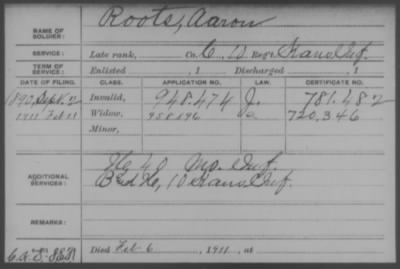 NAME OF SOLDIER: Roots, Aaron
SERVICE: Late rank, Co. C, 10 Reg't Kans Inf.
TERM OF SERVICE: Enlisted , 1 Discharged , 1
DATE OF FILING. CLASS. APPLICATION NO. LAW. CERTIFICATE NO.
Sept. 2 Invalid, 948.474 J. 781.482
1911 Feb 11 Widow, 720.346
Minor,
ADDITIONAL SERVICES: 40 Mo. Inf.
10 Kans Inf.
REMARKS:
Died Feb 6, 1911, at